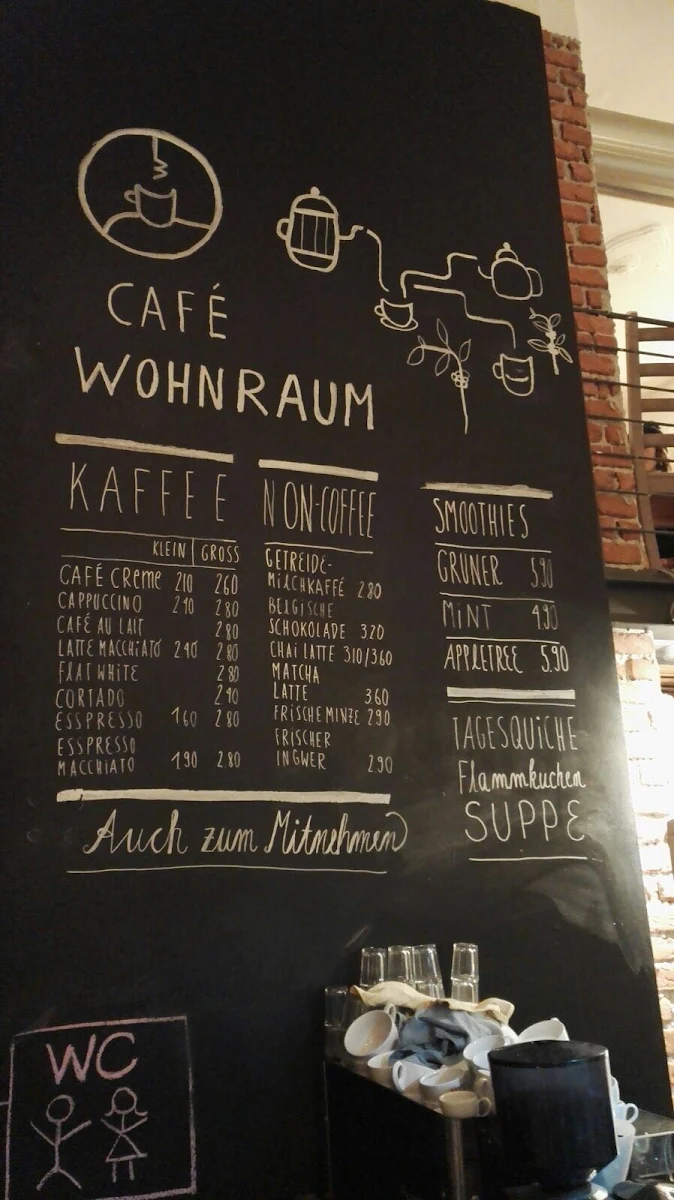 CAFÉ
WOHNRAUM
KAFFEE
KLEIN GROSS
CAFÉ CREME 210 260
CAPPUCCINO 240 280
CAFÉ AU LAIT 280
LATTE MACCHIATO 240 280
FLAT WHITE 280
CORTADO 240
ESSPRESSO 160 280
ESSPRESSO
MACCHIATO 190 2.80
Auch zum Mitnehmen
NON-COFFEE
GETREIDE-
MILCHKAFFÉ 280
BELGISCHE
SCHOKOLADE 320
CHAI LATTE 310/360
MATCHA
LATTE 360
FRISCHE MINZE 290
FRISCHER
INGWER 290
SMOOTHIES
GRÜNER 5.90
MiNT 4.90
APPLETREE 5.90
TAGESQUiCHE
Flammkuchen
SUPPE
WC